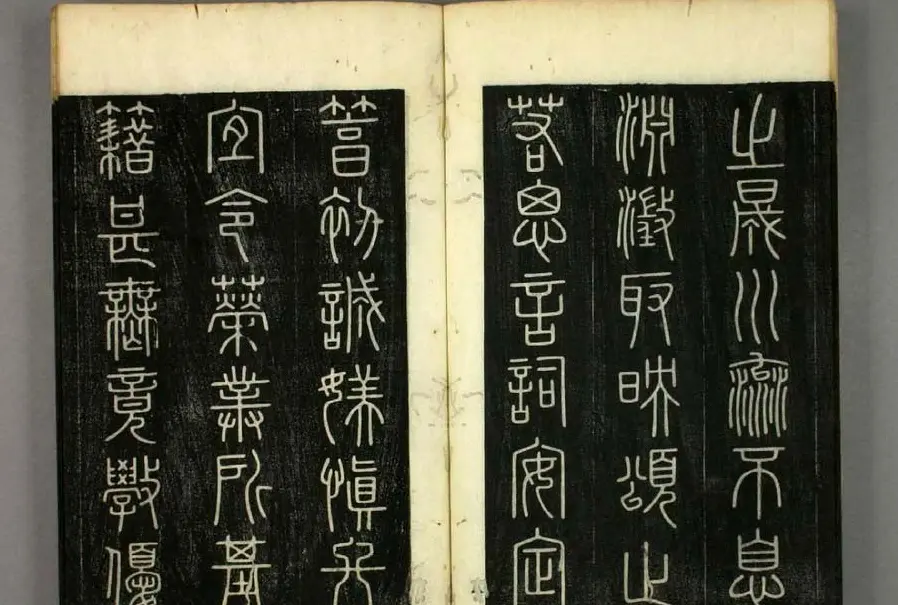 之盛川流不息
淵澂取映頌止
若思言詞安定
篤初誠媄慎終
宜令榮業所基
籍甚無竟斆優